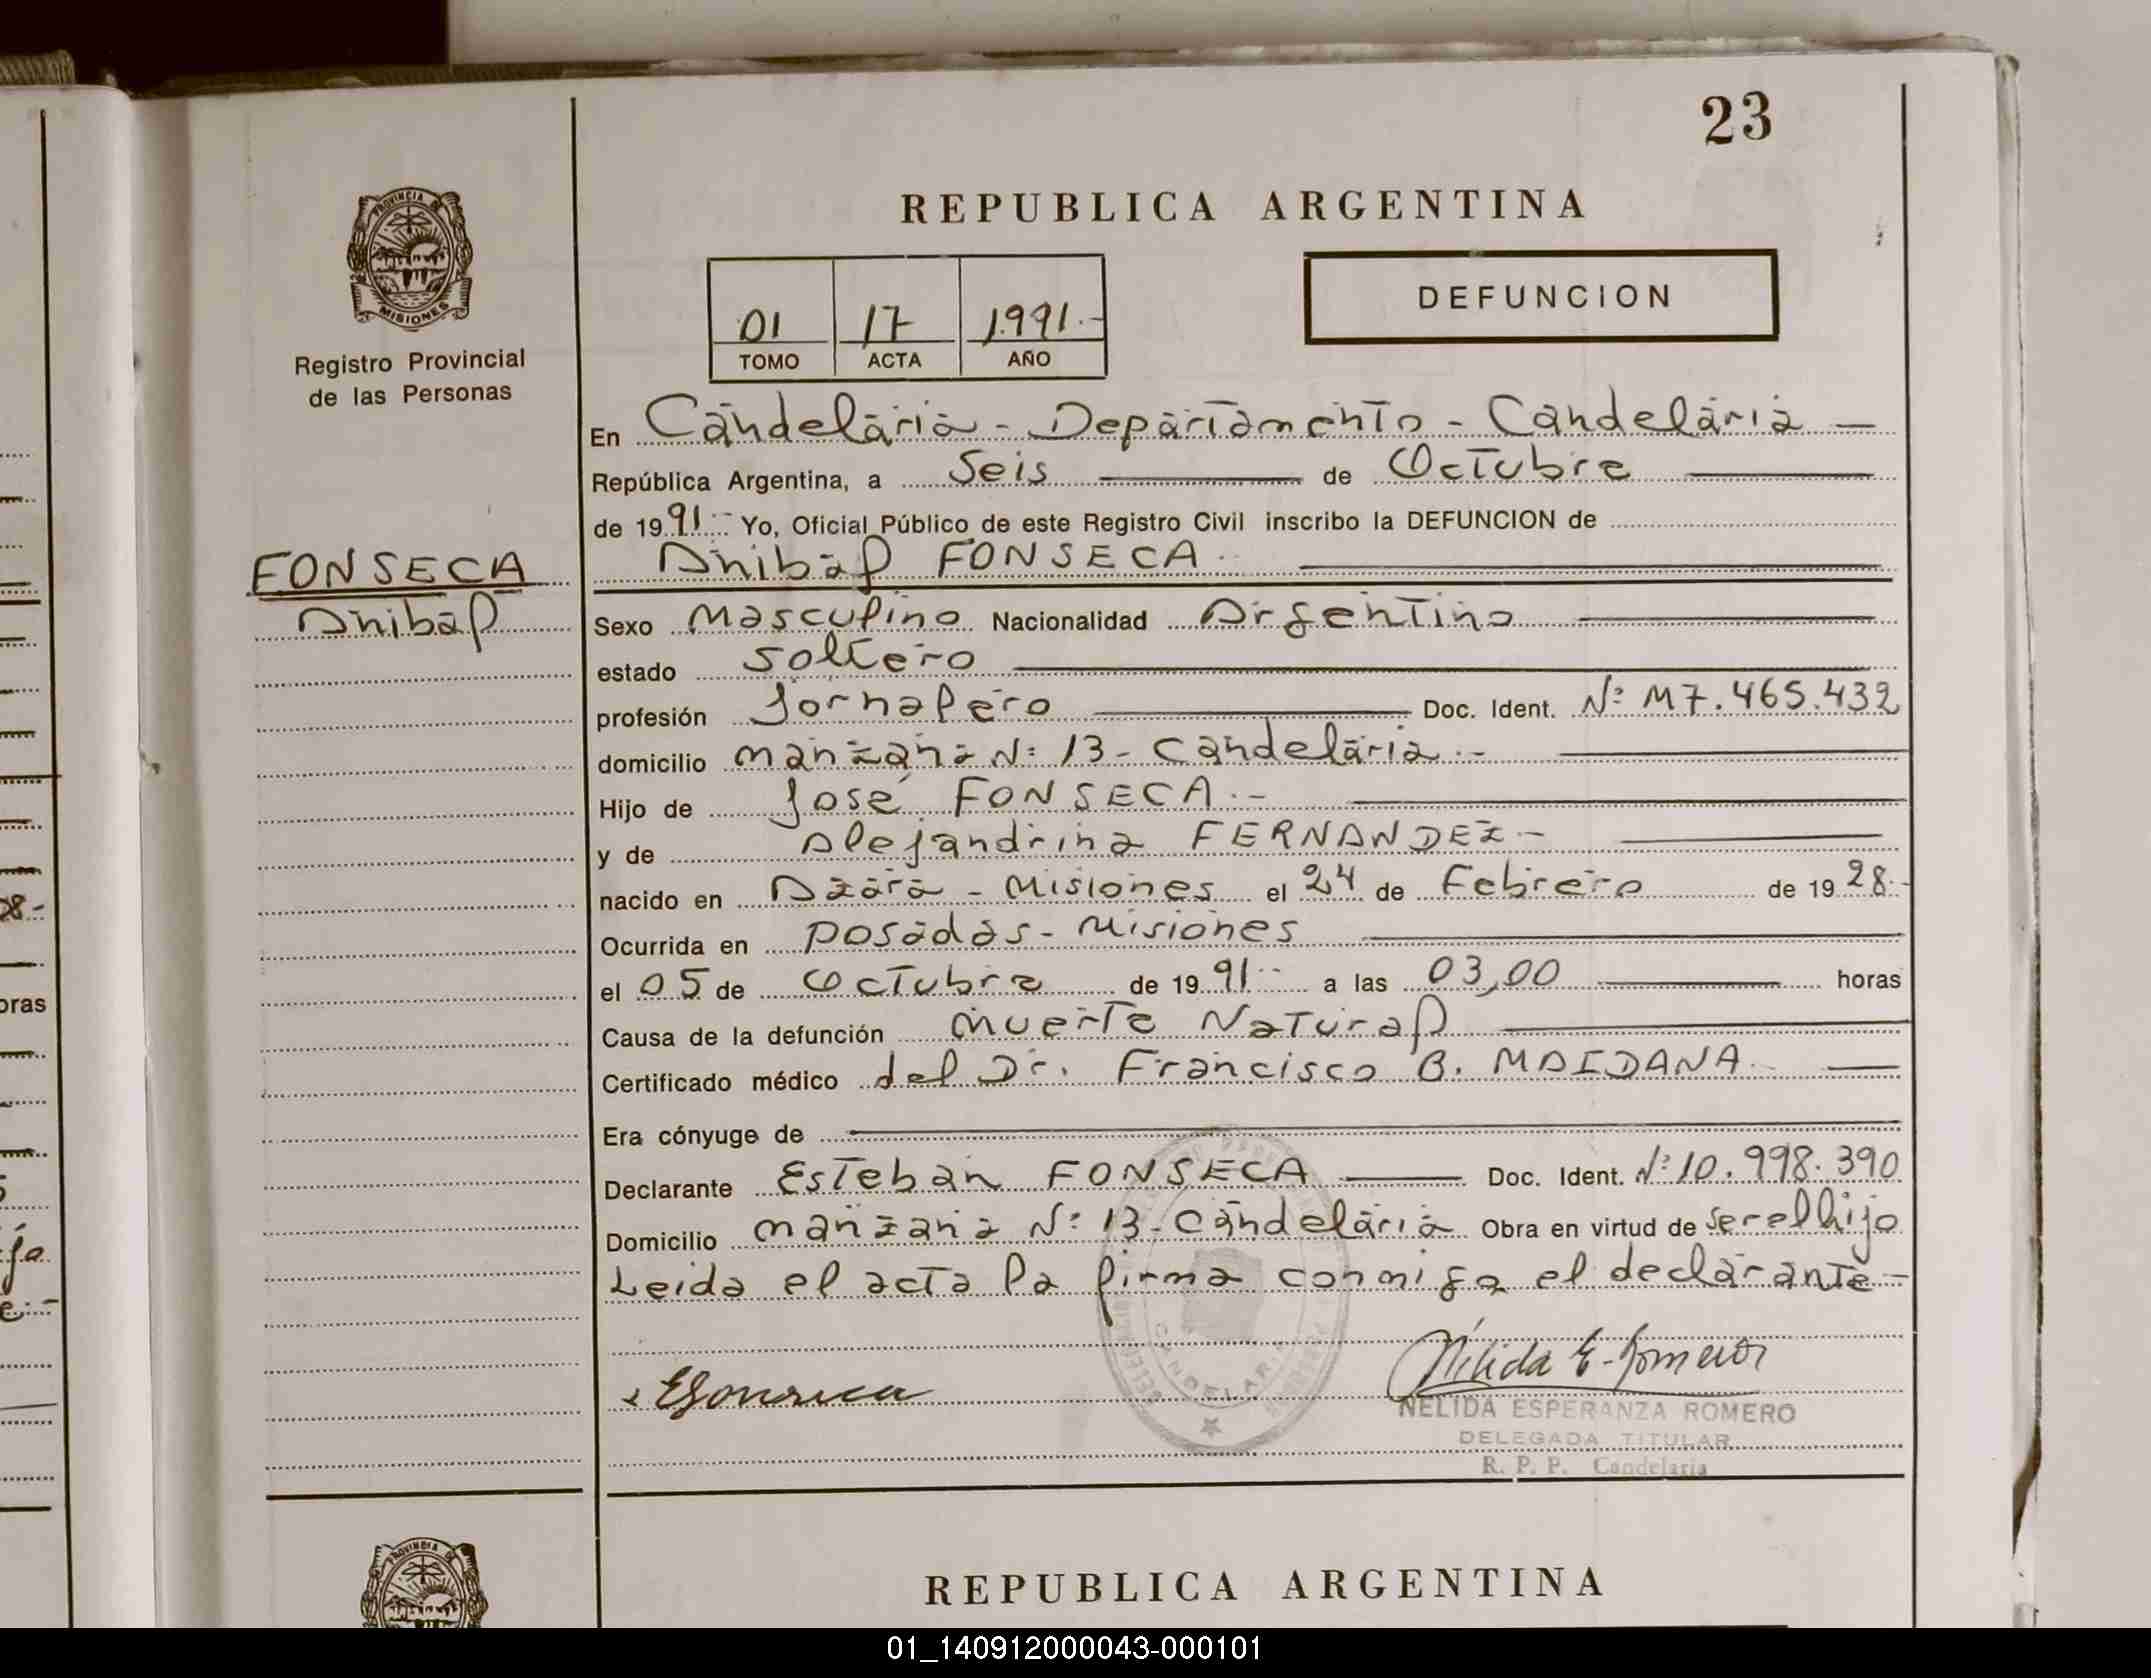 23
PROVINCIA DE
MISIONES
Registro Provincial
de las Personas
REPUBLICA ARGENTINA
01 17 1991.-
TOMO ACTA AÑO
DEFUNCION
En Candelaria - Departamento - Candelaria —
República Argentina, a Seis de Octubre
de 1991.- Yo, Oficial Público de este Registro Civil inscribo la DEFUNCION de
Anibal FONSECA
FONSECA
Anibal
Sexo Masculino Nacionalidad Argentino
estado Soltero
profesión Jornalero Doc. Ident. Nº M7.465.432
domicilio manzana Nº 13 - Candelaria.-
Hijo de José FONSECA.-
y de Alejandrina FERNANDEZ-
nacido en Azara - Misiones el 24 de Febrero de 1928.-
Ocurrida en posadas - Misiones
el 05 de Octubre de 1991.- a las 03,00 horas
Causa de la defunción muerte Natural
Certificado médico del Dr. Francisco B. MAIDANA
Era cónyuge de
Declarante Esteban FONSECA Doc. Ident. Nº 10.998.390
Domicilio manzana Nº 13 - Candelaria Obra en virtud de ser el hijo
Leida el acta la firma conmigo el declarante-
EFonseca
Nélida E. Romero
NELIDA ESPERANZA ROMERO
DELEGADA TITULAR
R. P. P. Candelaria
CANDELARIA
PROVINCIA DE
REPUBLICA ARGENTINA
01_140912000043-000101